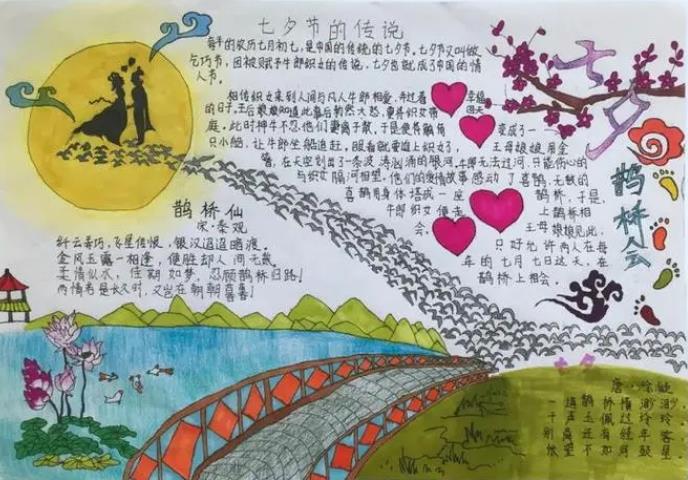 七夕节的传说
每年的农历七月初七,是中国的传统的七夕节。七夕节又叫做
乞巧节,因被赋予牛郎织女的传说,七夕也就成了中国的情
人节。
相传织女来到人间与凡人牛郎相爱,并过着幸福
的日子,王后娘娘知道此事后勃然大怒,要将织女带回天
庭。此时神牛不忍他们妻离子散,于是便将触角变成了一
只小船,让牛郎坐船追赶。眼看就要追上织女了,王母娘娘用金
簪,在天空划出了一条波涛汹涌的银河,牛郎无法过河,只能伤心的
与织女隔河相望,他们的爱情故事感动了喜鹊,无数的
喜鹊用身体搭成一座鹊桥,于是,
牛郎织女便走上鹊桥相
会,王母娘娘见此,
只好允许两人在每
年的七月七日这天,在
鹊桥上相会。
七夕
鹊桥会
鹊桥仙
宋·秦观
纤云弄巧,飞星传恨,银汉迢迢暗渡。
金风玉露一相逢,便胜却人间无数
柔情似水,佳期如梦,忍顾鹊桥归路!
两情若是长久时,又岂在朝朝暮暮!
七夕
唐·徐凝
一道鹊桥横渺渺
千声玉佩过玲玲
别离还有经年客
怅望不如河鼓星